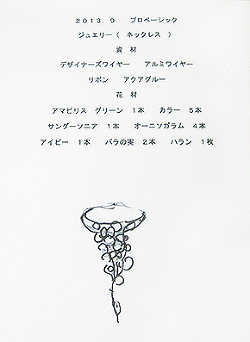 2013.9 プロベーシック
ジュエリー( ネックレス )
資 材
デザイナーズワイヤー アルミワイヤー
リボン アクアグルー
花 材
アマビリス グリーン 1本 カラー 5本
サンダーソニア 1本 オーニソガラム 4本
アイビー 1本 バラの実 2本 ハラン 1枚